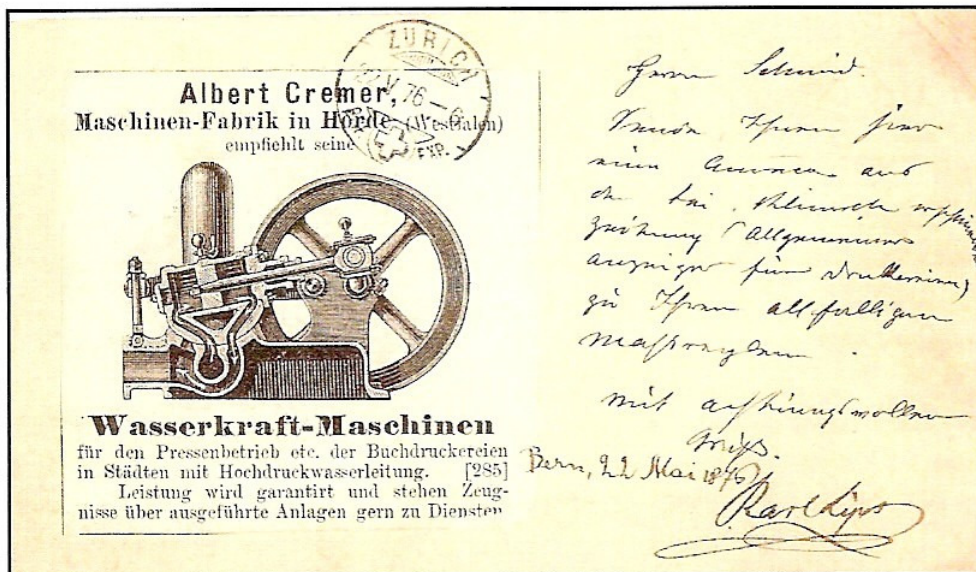 Albert Cremer,
Maschinen-Fabrik in Hörde (Westfalen)
empfiehlt seine
Wasserkraft-Maschinen
für den Pressenbetrieb etc. der Buchdruckereien
in Städten mit Hochdruckwasserleitung. [285]
Leistung wird garantirt und stehen Zeug-
nisse über ausgeführte Anlagen gern zu Diensten
ZÜRICH
V 76 - 6
EXP.
Herrn Schmid.
Ihnen hier
eine Annonce aus
der bei
Zeitung (Allgemeiner
Anzeiger für Druckereien)
zu Ihren allfälligen
Massregeln.
mit achtungsvollem
Gruss.
Bern, 22 Mai 1876
Karl Lips